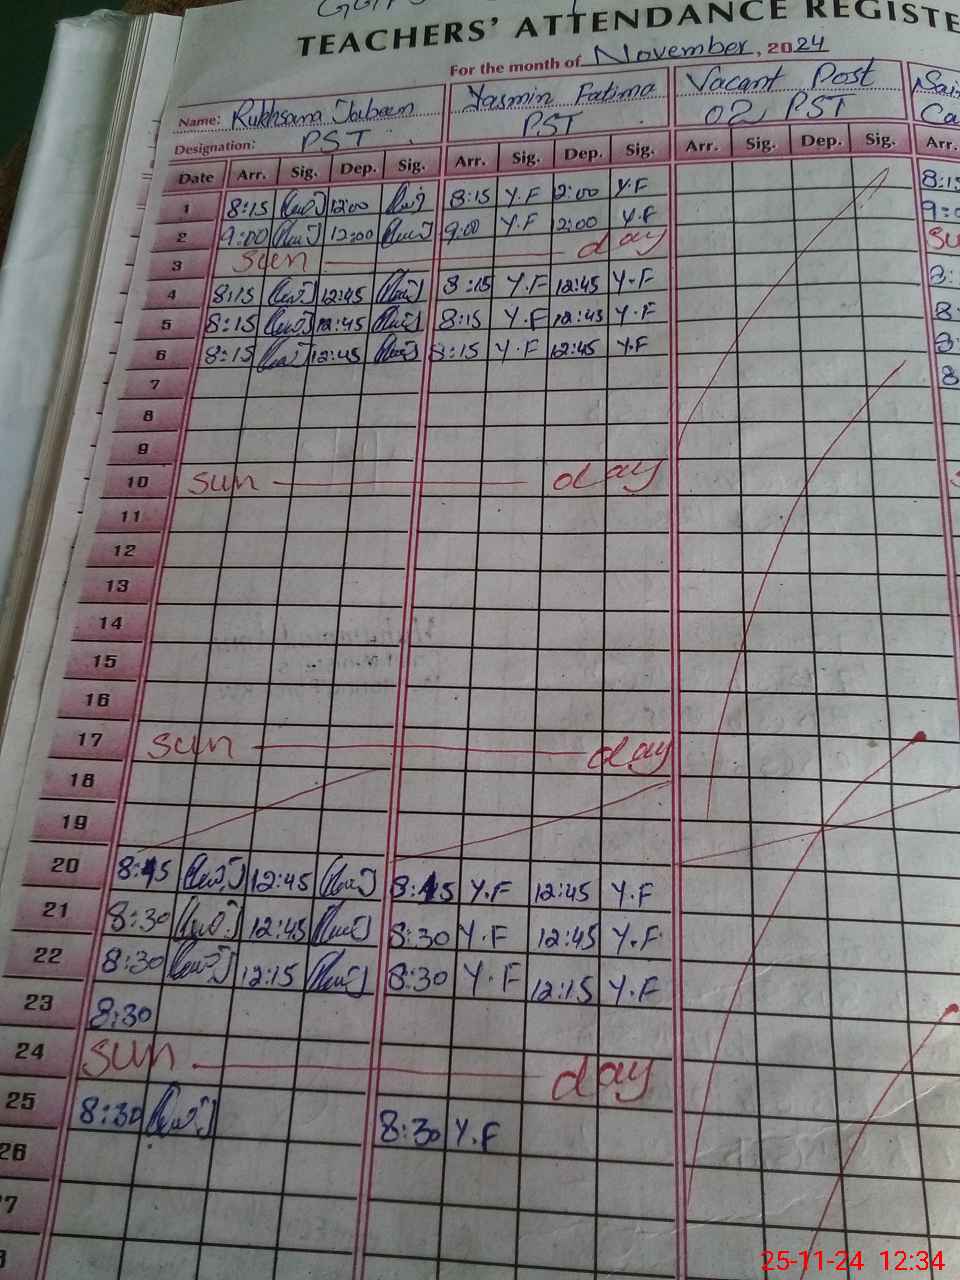 TEACHERS' ATTENDANCE REGISTE
For the month of November, 2024
Name: Rukhsana Jabeen Yasmin Fatima Vacant Post
Designation: PST PST 02 PST
Date Arr. Sig. Dep. Sig. Arr. Sig. Dep. Sig. Arr. Sig. Dep. Sig. Arr.
1 8:15 12:00 8:15 Y.F 2:00 Y.F 8:15
2 9:00 12:00 9:00 Y.F 2:00 Y.F
3 sun day
4 8:15 12:45 8:15 Y.F 12:45 Y.F
5 8:15 12:45 8:15 Y.F 12:45 Y.F
6 8:15 12:45 8:15 Y.F 12:45 Y.F
7
8
9
10 sun day
11
12
13
14
15
16
17 sun day
18
19
20 8:45 12:45 8:45 Y.F 12:45 Y.F
21 8:30 12:45 8:30 Y.F 12:45 Y.F
22 8:30 12:15 8:30 Y.F 12:15 Y.F
23 8:30
24 sun day
25 8:30 8:30 Y.F
26
25-11-24 12:34